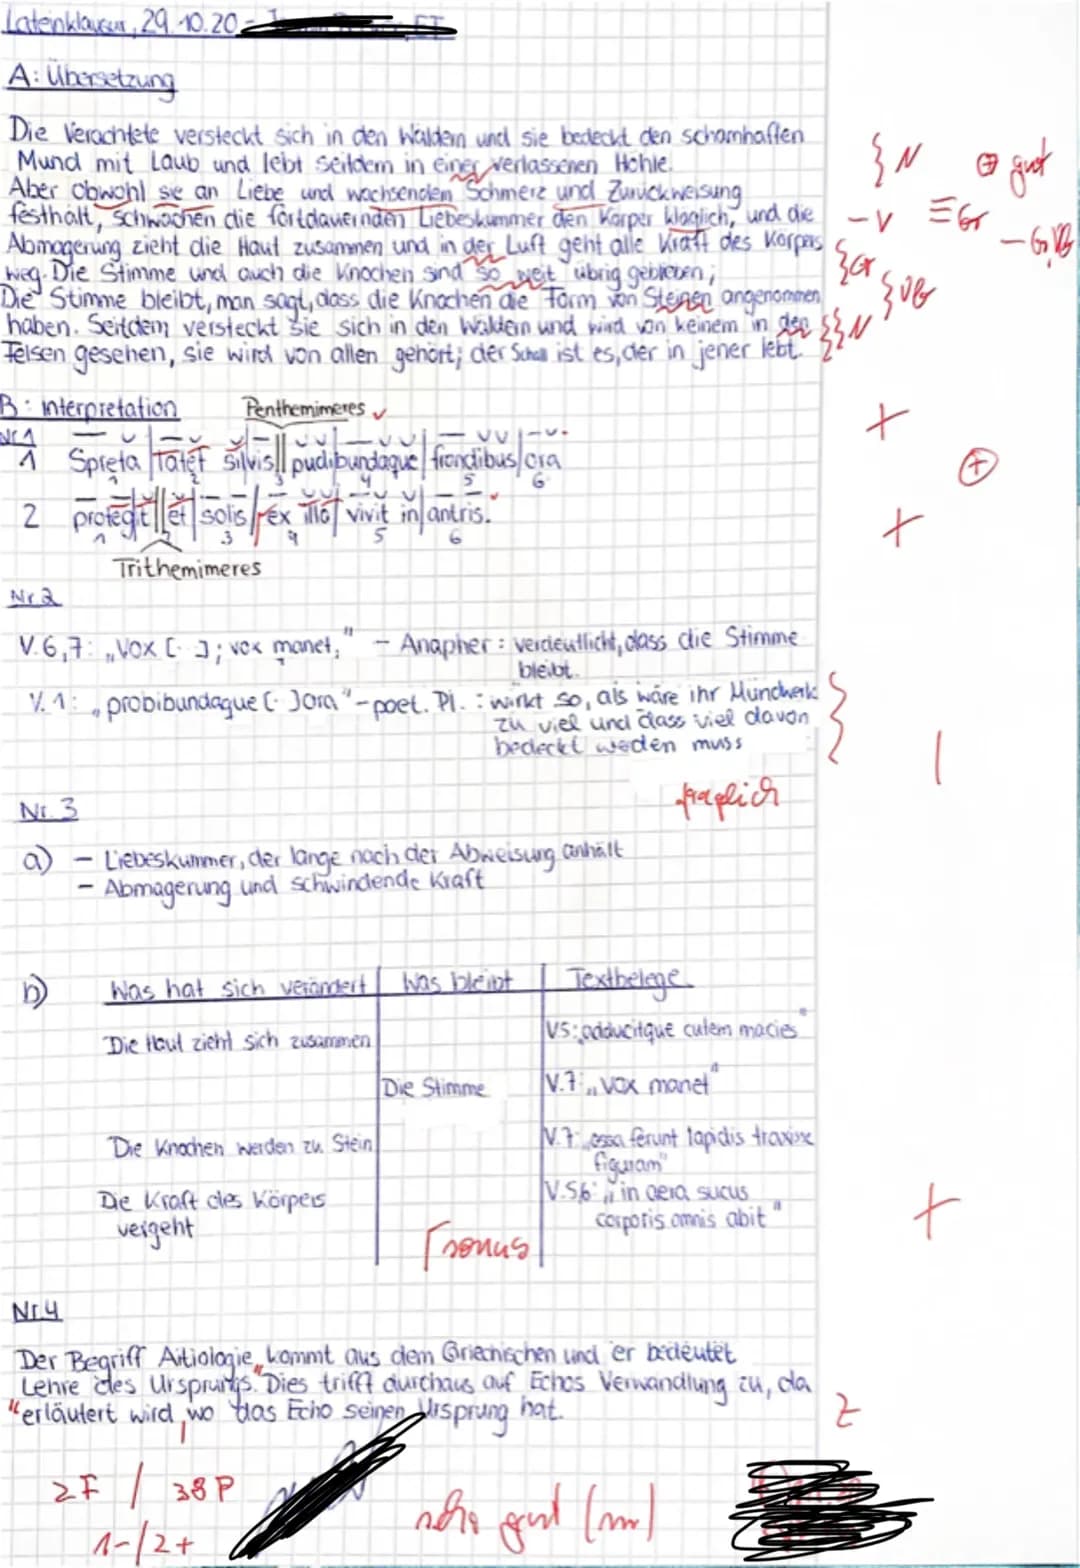 Lateinklausur, 29.10.20
A: Übersetzung
Die Verachtete versteckt sich in den Wäldern und sie bedeckt den schamhaften
Mund mit Laub und lebt seitdem in einer verlassenen Höhle.
} N
⊕ gut
Aber obwohl sie an Liebe und wachsendem Schmerz und Zurückweisung
festhält, schwächen die fortdauernden Liebeskummer den Körper kläglich, und die
- V
Gr
Abmagerung zieht die Haut zusammen und in der Luft geht alle Kraft des Körpers
weg. Die Stimme und auch die Knochen sind so weit übrig geblieben;
} Gr
Die Stimme bleibt, man sagt, dass die Knochen die Form von Steinen angenommen
} VB
haben. Seitdem versteckt sie sich in den Wäldern und wird von keinem in den
}} N
Felsen gesehen, sie wird von allen gehört; der Schall ist es, der in jener lebt.
B: Interpretation
Penthemimeres ✓
Nr.1
1 Spreta latet silvis || pudibundaque frondibus ora
1 2 3 4 5 6
+
⊕
2 protegit || et solis ex illo vivit in antris.
1 2 3 4 5 6
+
Trithemimeres
Nr.2
V.6,7: „Vox [..]; vox manet," - Anapher: verdeutlicht, dass die Stimme
bleibt.
V.1: „probibundaque [..]ora" - poet. Pl. : wirkt so, als wäre ihr Mundwerk
zu viel und dass viel davon
bedeckt weden muss
|
fraglich
Nr. 3
a) - Liebeskummer, der lange nach der Abweisung anhält
- Abmagerung und schwindende Kraft
b) Was hat sich verändert | Was bleibt | Textbelege
Die Haut zieht sich zusammen
V5: „adducitque cutem macies"
Die Stimme
V.7: „vox manet"
Die Knochen werden zu Stein
V.7: „ossa ferunt lapidis traxisse
figuram"
Die Kraft des Körpers
vergeht
V.5,6: „in aera sucus
corporis omnis abit"
+
sonus
Nr.4
Der Begriff Aitiologie kommt aus dem Griechischen und er bedeutet
"Lehre des Ursprungs." Dies trifft durchaus auf Echos Verwandlung zu, da
erläutert wird, wo das Echo seinen Ursprung hat.
Z
2F / 38P
1-/2+
sehr gut (m)